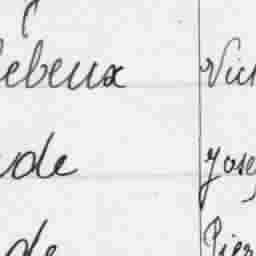 ebeux Vic
de Jose
de Pier